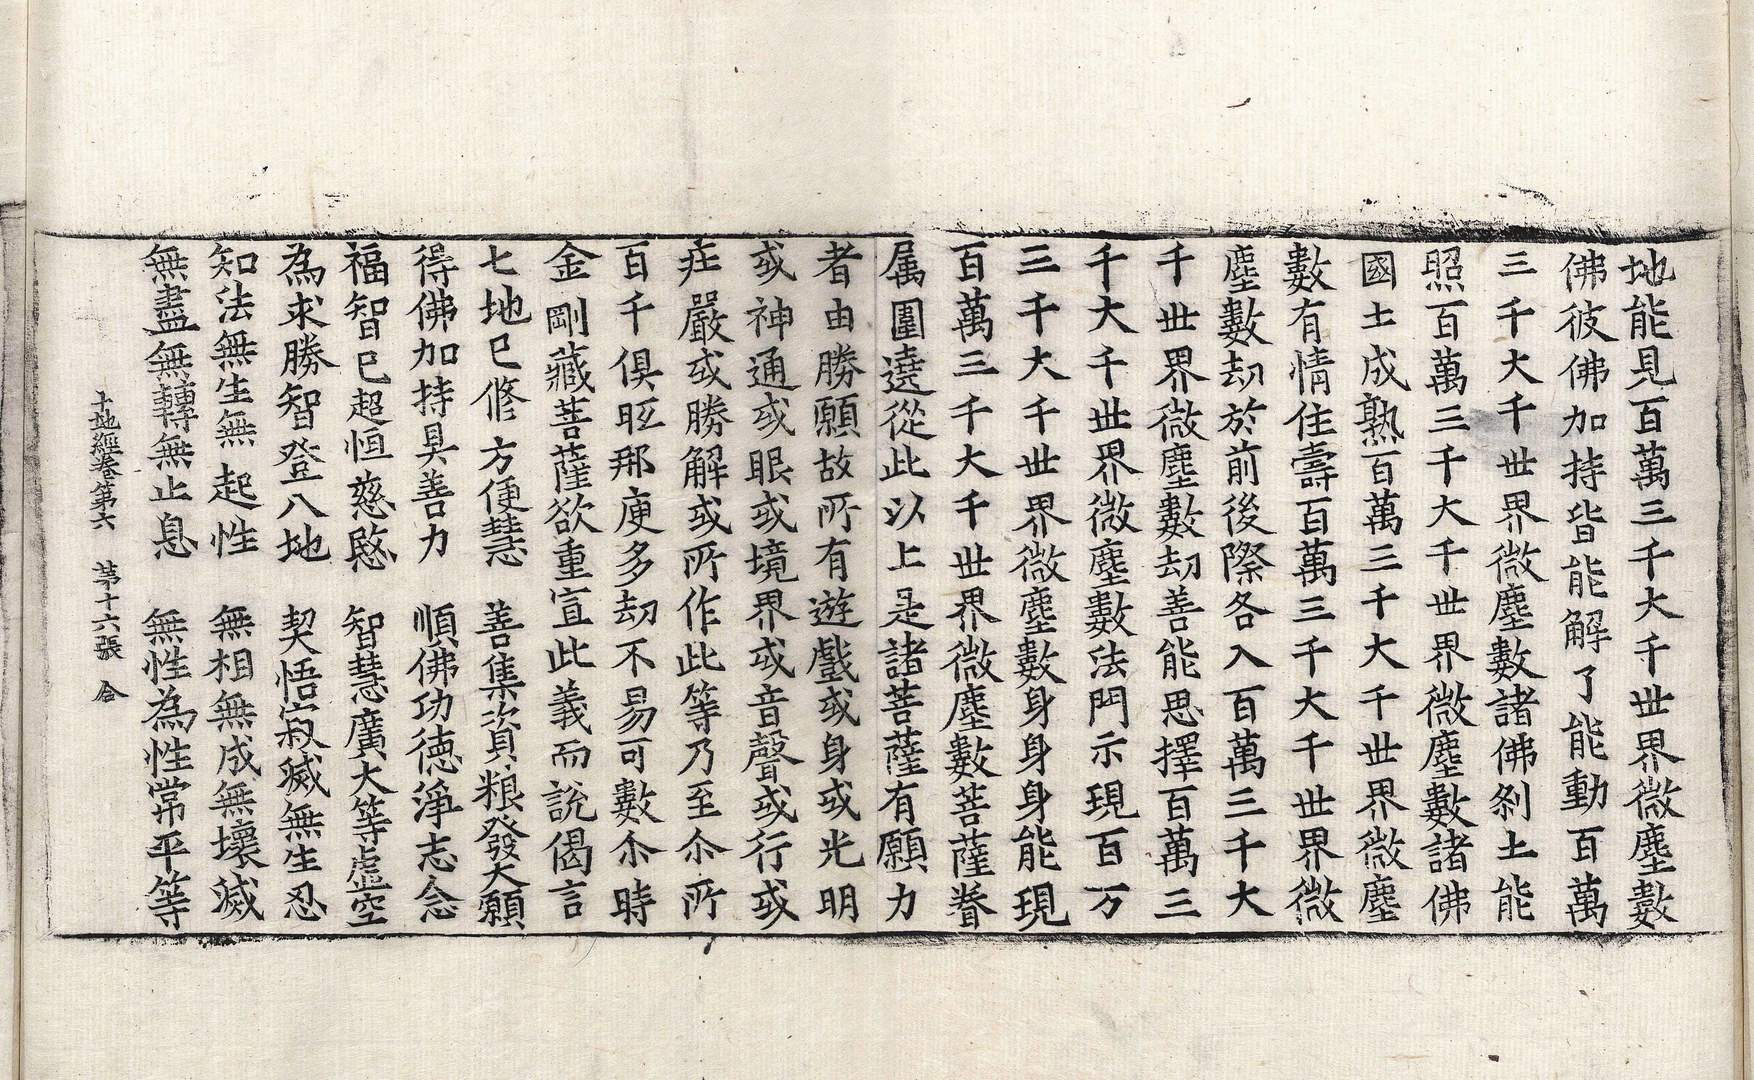 地能見百萬三千大千世界微塵數
佛彼佛加持皆能解了能動百萬
三千大千世界微塵數諸佛刹土能
照百萬三千大千世界微塵數諸佛
國土成熟百萬三千大千世界微塵
數有情住壽百萬三千大千世界微
塵數劫於前後際各入百萬三千大
千世界微塵數劫善能思擇百萬三
千大千世界微塵數法門示現百万
三千大千世界微塵數身身身能現
百萬三千大千世界微塵數菩薩眷
属圍遶從此以上是諸菩薩有願力
者由勝願故所有遊戲或身或光明
或神通或眼或境界或音聲或行或
莊嚴或勝解或所作此等乃至尒所
百千俱胝那庾多劫不易可數尒時
金剛藏菩薩欲重宣此義而說偈言
七地已修方便慧　善集資粮發大願
得佛加持具善力　順佛功德淨志念
福智已超恒慈愍　智慧廣大等虛空
為求勝智登八地　契悟寂滅無生忍
知法無生無起性　無相無成無壞滅
無盡無轉無止息　無性為性常平等
十地經卷第六　苐十六張　合